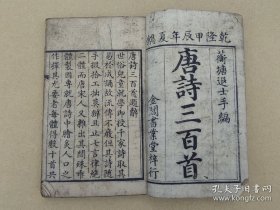 乾隆甲辰年夏鐫
蘅塘退士手編
唐詩三百首
金閶書業堂梓行
唐詩三百首題辭
世俗兒童就學即授千家詩取其
易於成誦故流傳不廢但其詩隨
手掇拾工拙莫辨且止七言律絕
二體而唐宋人又雜出其間殊乖
體製因專就唐詩中膾炙人口之
作擇其尤要者每體得數十首共